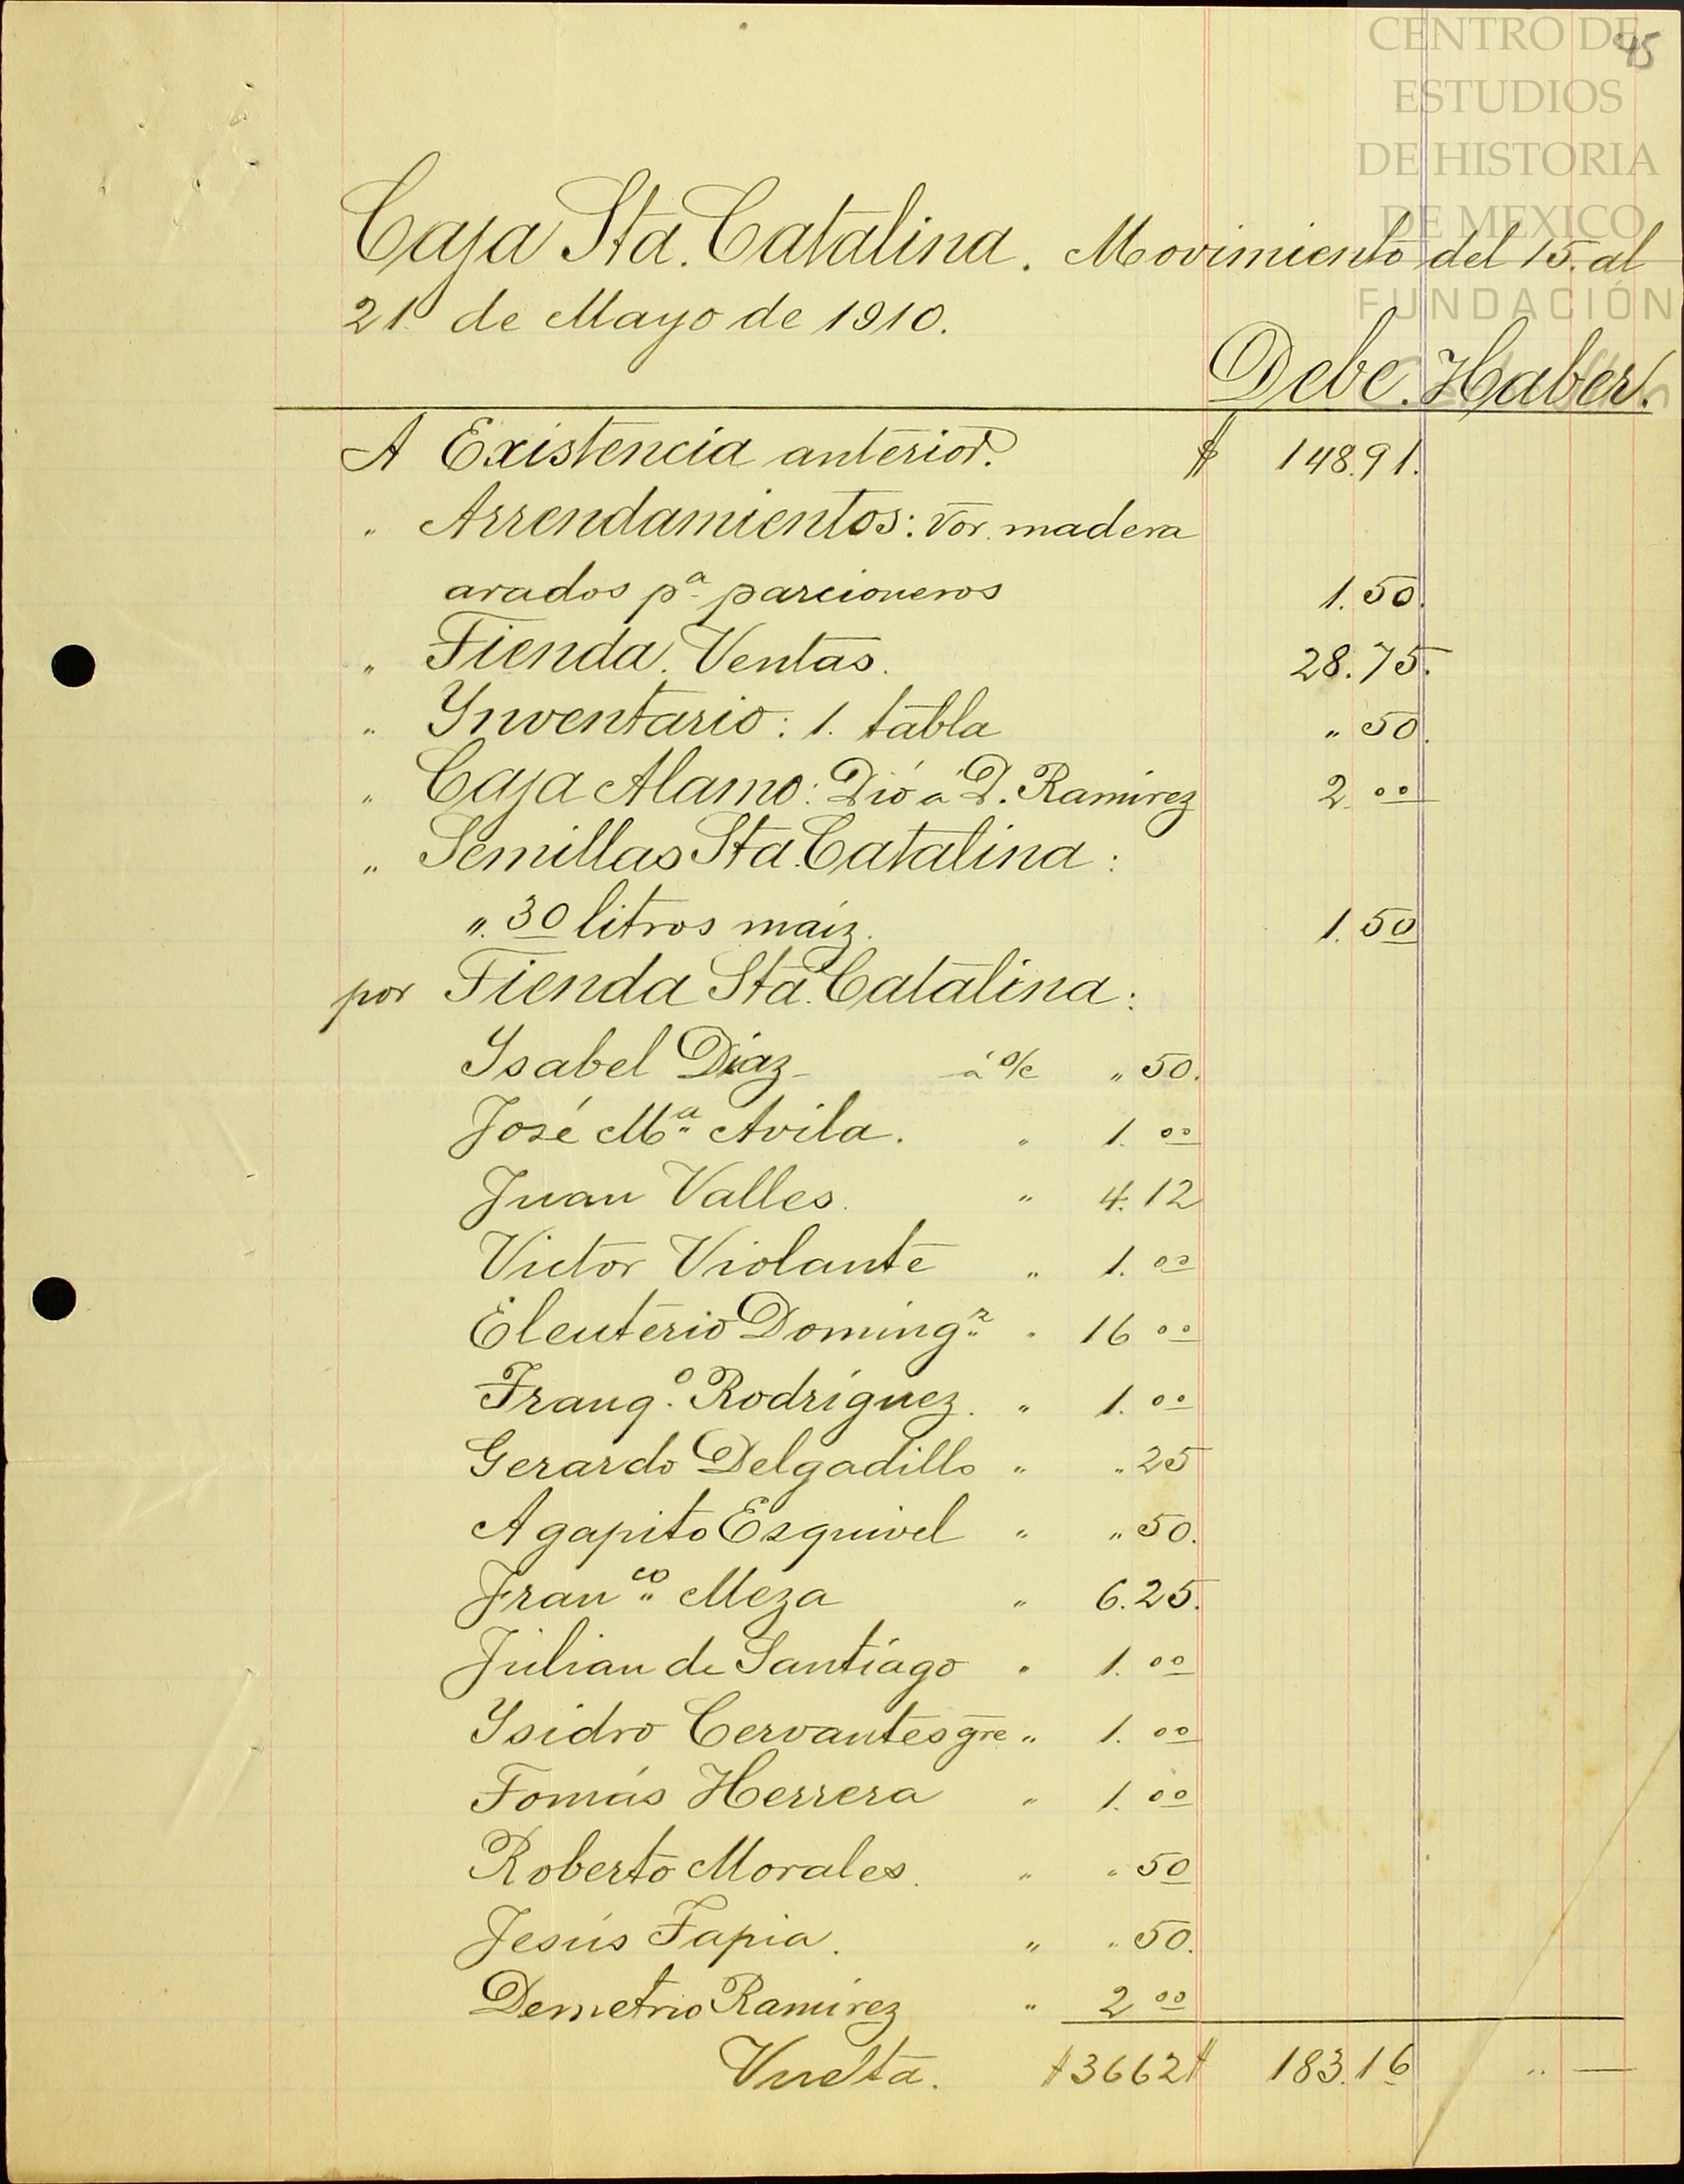 CENTRO DE
ESTUDIOS
DE HISTORIA
DE MEXICO
FUNDACIÓN
45
Caja Sta. Catalina. Movimiento del 15. al
21. de Mayo de 1910.
Debe. Haber.
A Existencia anterior. $ 148.91.
" Arrendamientos: Vor. madera
arados pa. parcioneros 1.50.
" Tienda. Ventas. 28.75.
" Ynventario: 1. tabla " 50.
" Caja Alamo: Dió á D. Ramirez 2.00
" Semillas Sta. Catalina:
". 30 litros maíz. 1.50
por Tienda Sta. Catalina:
Ysabel Diaz á o/c " 50.
José Ma. Avila. " 1.00
Juan Valles. " 4.12
Victor Violante " 1.00
Eleuterio Domingz. " 16 00
Franqo. Rodriguez. " 1.00
Gerardo Delgadillo " " 25
Agapito Esquivel " " 50.
Franco. Meza " 6.25.
Julian de Santiago " 1.00
Ysidro Cervantes gre " 1.00
Tomás Herrera " 1.00
Roberto Morales. " " 50
Jesús Tapia. " " 50.
Demetrio Ramirez " 2 00
Vuelta. $ 36 62 $ 183.16 " —